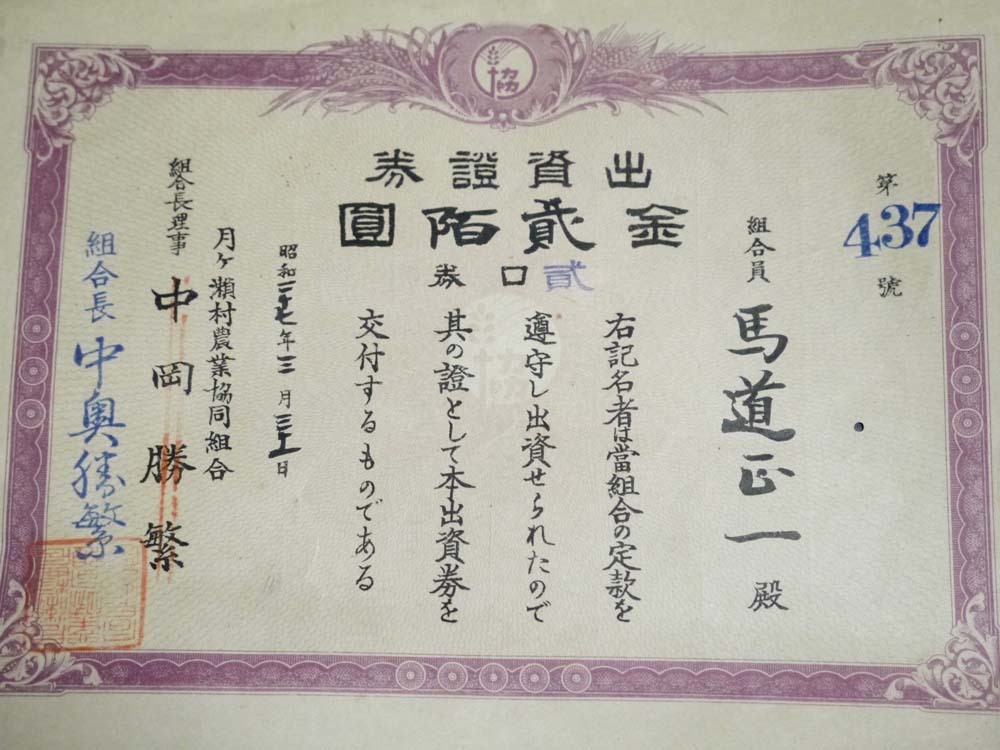 協
出資證券
金貳陌圓
貳口券
第437號
組合員 馬道正一殿
右記名者は當組合の定款を
遵守し出資せられたので
其の證として本出資券を
交付するものである
昭和二七年三月三一日
月ヶ瀬村農業協同組合
組合長理事 中岡勝繁
組合長 中奥勝繁
協